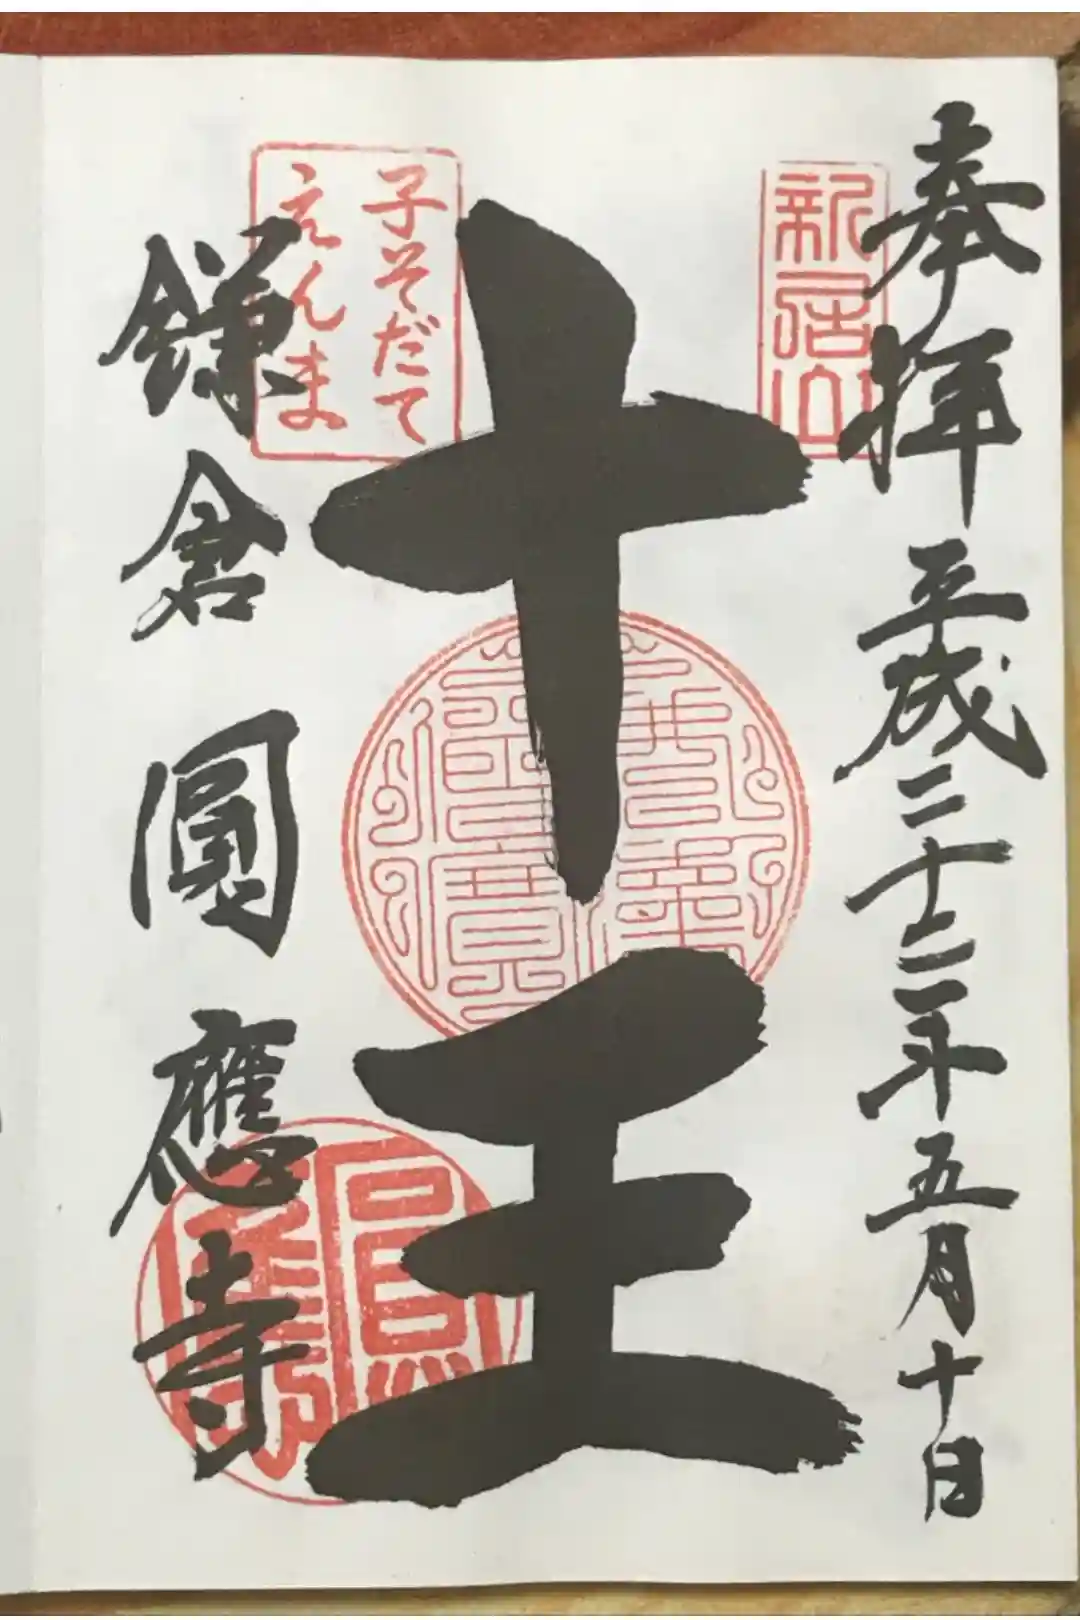 奉拝 平成二十二年五月十日
新居山
十王
子そだて
えんま
鎌倉 圓應寺